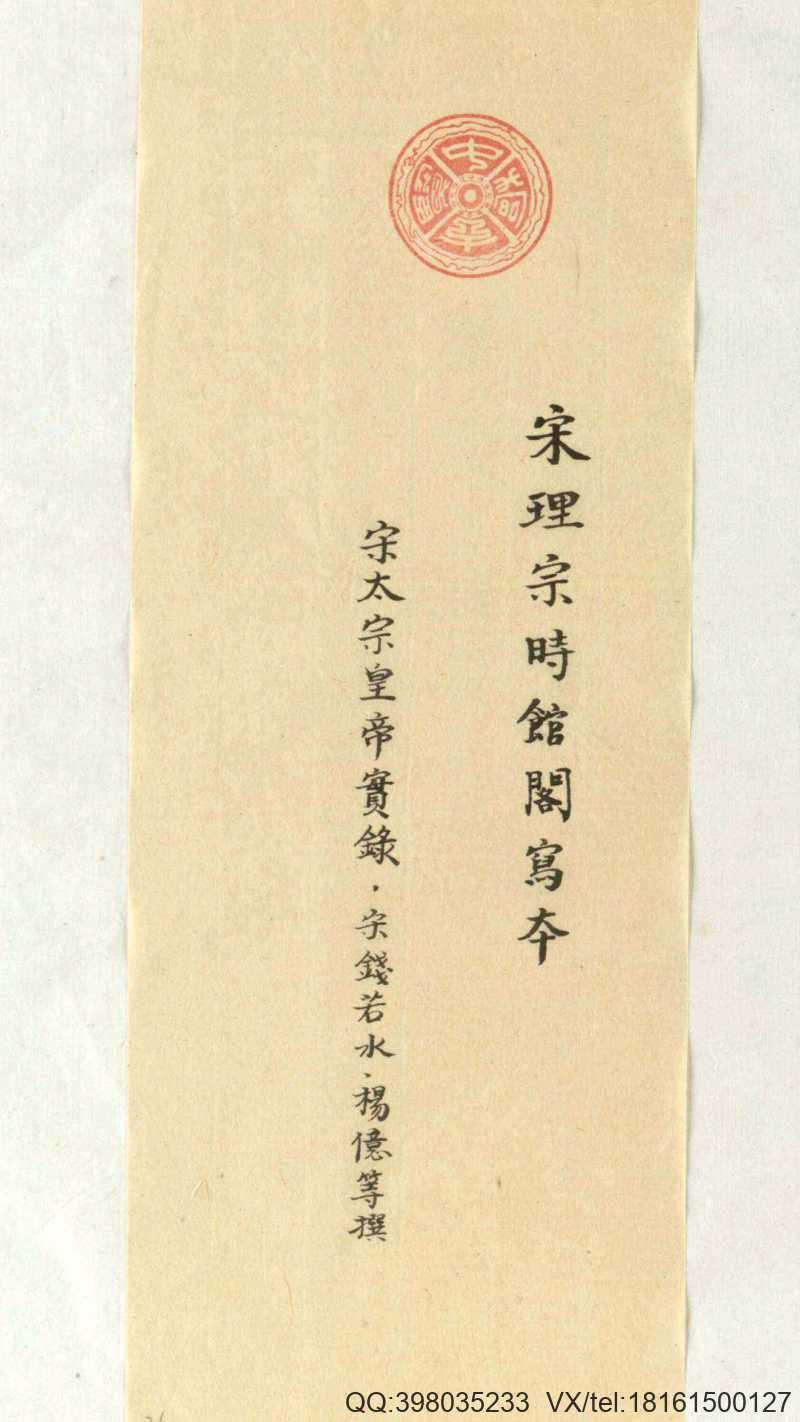 宋理宗時館閣寫本
宋太宗皇帝實錄，宋錢若水．楊億等撰
QQ:398035233 VX/tel:18161500127